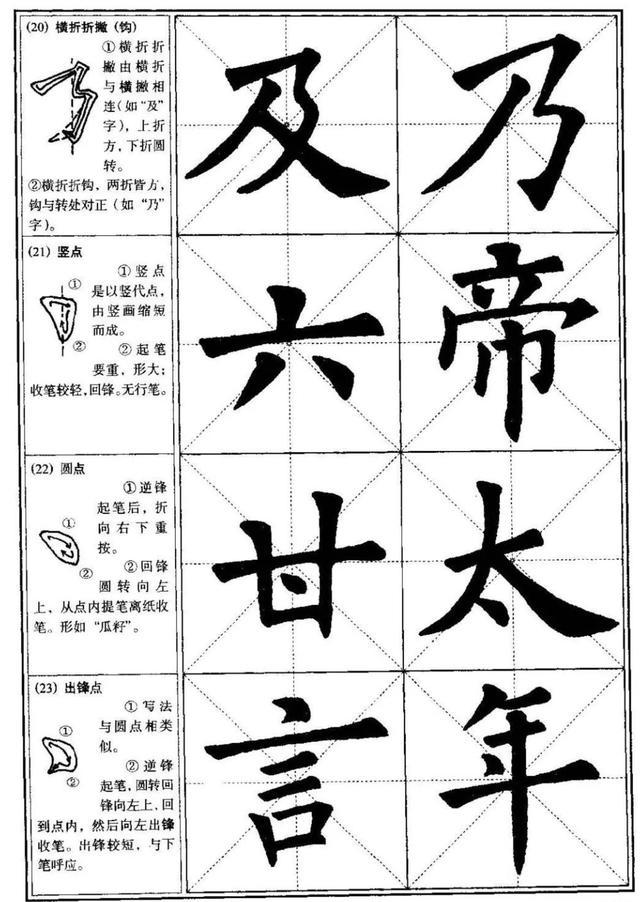 (20) 横折折撇 (钩)
①横折折
撇由横折
与横撇相
连(如“及”
字), 上折
方, 下折圆
转。
②横折折钩, 两折皆方,
钩与转处对正 (如 “乃”
字)。
及 乃
(21) 竖点
①竖点
①
是以竖代点,
由竖画缩短
而成。
②
②起笔
要重, 形大;
收笔较轻, 回锋。无行笔。
六 帝
(22) 圆点
①逆锋
起笔后, 折
①
向右下重
按。
②回锋
②
圆转向左
上, 从点内提笔离纸收
笔。形如 “瓜籽”。
甘 太
(23) 出锋点
①写法
①
与圆点相类
似。
②逆锋
②
起笔, 圆转回
锋向左上, 回
到点内, 然后向左出锋
收笔。出锋较短, 与下
笔呼应。
言 年